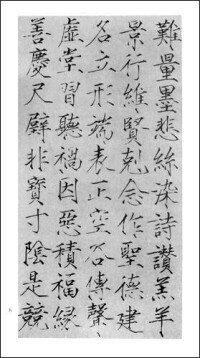 難量墨悲絲染詩讚羔羊
景行維賢剋念作聖德建
名立形端表正空谷傳聲
虛堂習聽禍因惡積福緣
善慶尺璧非寶寸陰是競